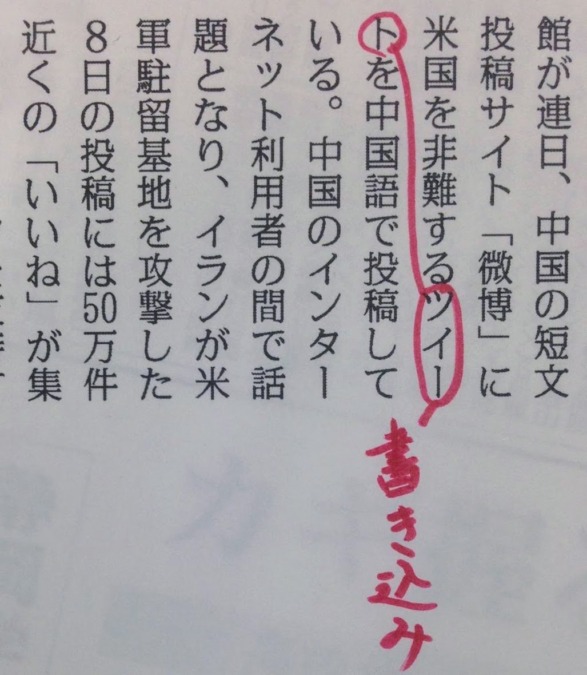 館が連日、中国の短文
投稿サイト「微博」に
米国を非難するツイー
トを中国語で投稿して
いる。中国のインター
ネット利用者の間で話
題となり、イランが米
軍駐留基地を攻撃した
8日の投稿には50万件
近くの「いいね」が集
書き込み